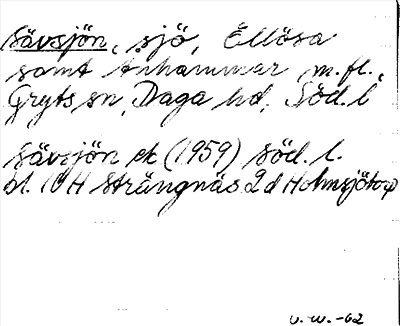 Sävsjön, sjö, Ellösa
samt Anhammar m.fl.,
Gryts sn, Daga hd, Söd. l
Sävsjön ek (1959) Söd. l.
bl. 10 H Strängnäs 2 d Holmsjötorp
v.w.-62